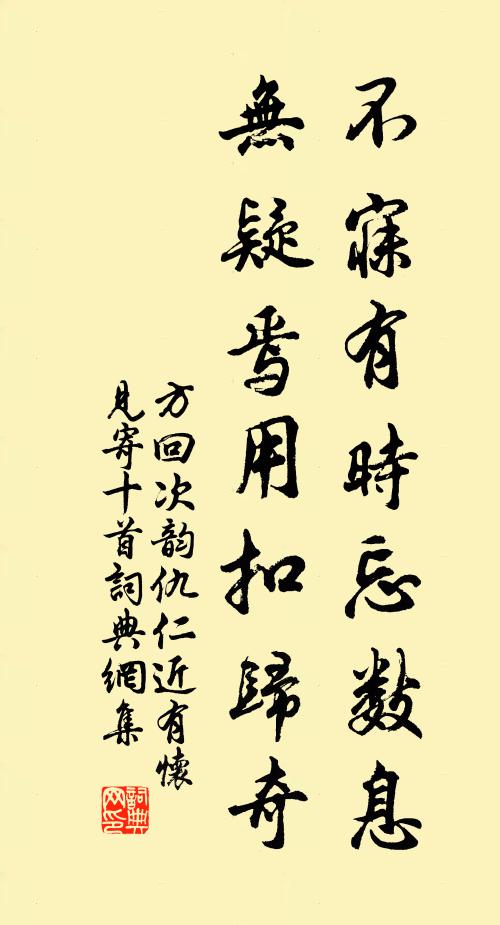 不寐有時忘數息
無疑焉用扣歸奇
方回次韵仇仁近有懷
見寄十首詞典網集
詞典網印